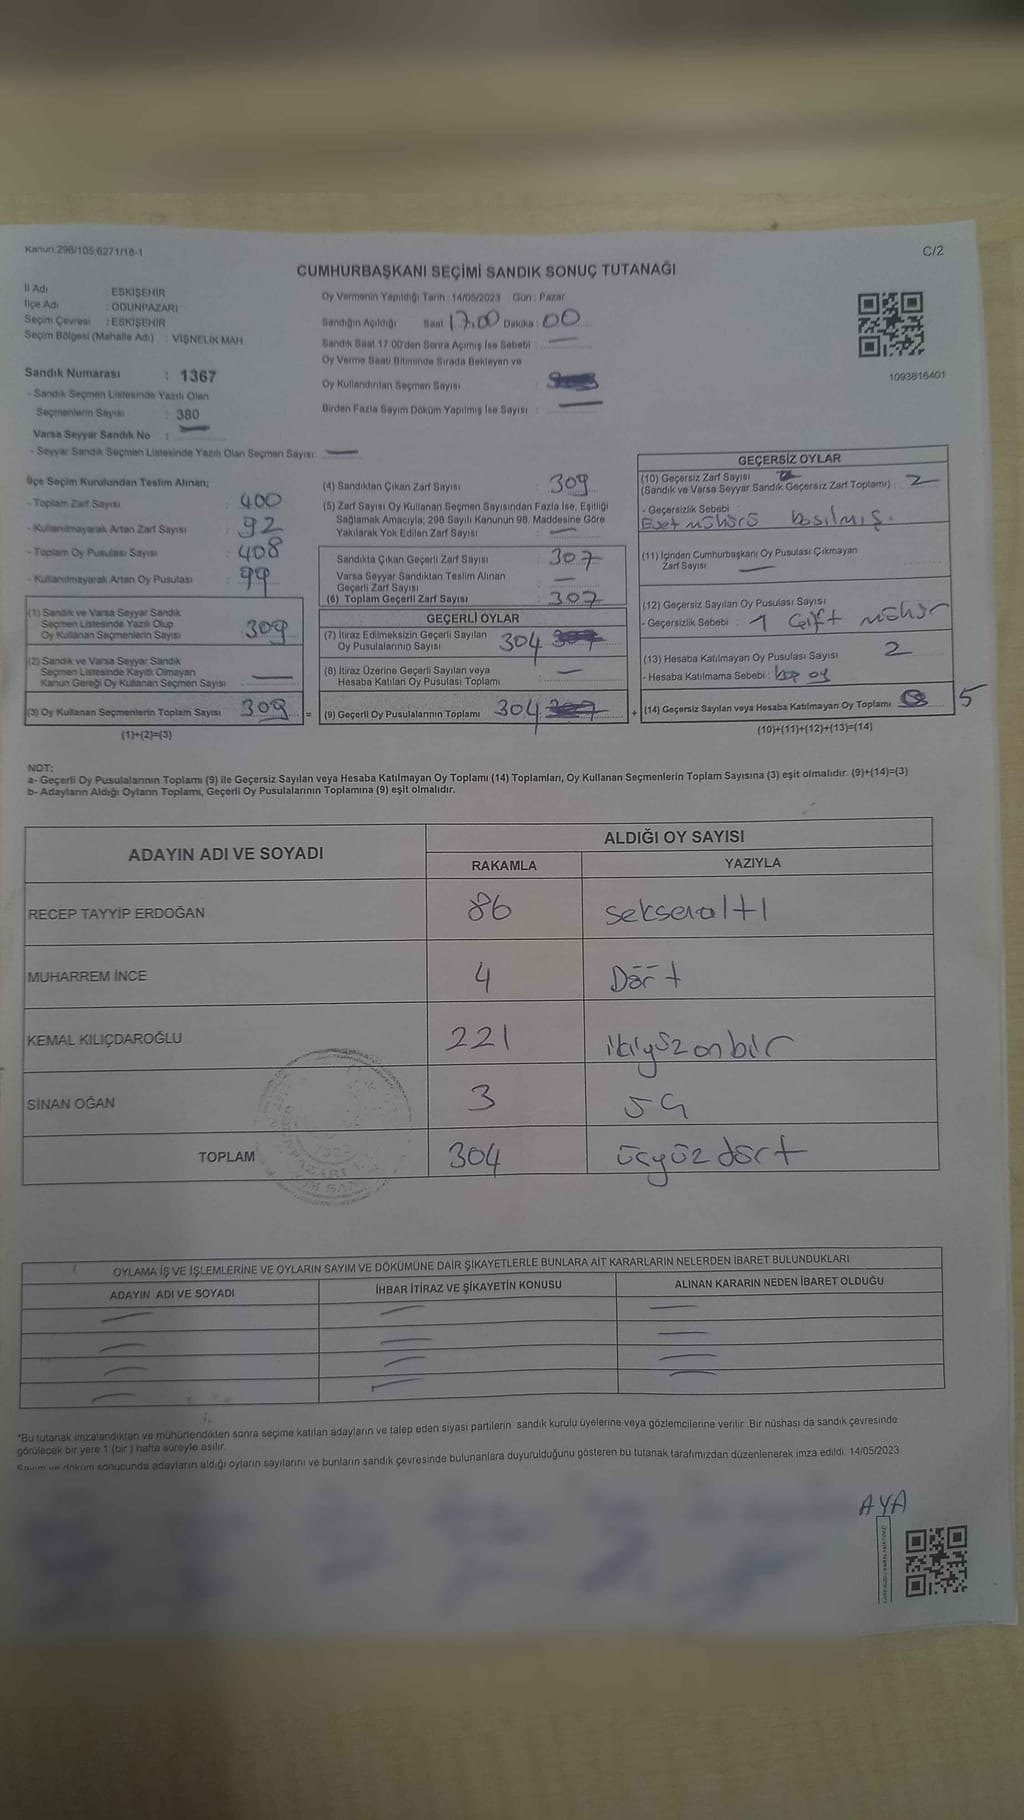 Kanun:298/105;6271/18-1
C/2
CUMHURBAŞKANI SEÇİMİ SANDIK SONUÇ TUTANAĞI
İl Adı : ESKİŞEHİR
İlçe Adı : ODUNPAZARI
Seçim Çevresi : ESKİŞEHİR
Seçim Bölgesi (Mahalle Adı) : VİŞNELİK MAH
Sandık Numarası : 1367
- Sandık Seçmen Listesinde Yazılı Olan
Seçmenlerin Sayısı : 380
Varsa Seyyar Sandık No : —
- Seyyar Sandık Seçmen Listesinde Yazılı Olan Seçmen Sayısı: —
Oy Vermenin Yapıldığı Tarih : 14/05/2023 Gün : Pazar
Sandığın Açıldığı Saat 17.00 Dakika : 00
Sandık Saat 17:00'den Sonra Açımış İse Sebebi : —
Oy Verme Saati Bitiminde Sırada Bekleyen ve
Oy Kullandırılan Seçmen Sayısı
Birden Fazla Sayım Döküm Yapılmış İse Sayısı : —
1093816401
İlçe Seçim Kurulundan Teslim Alınan;
- Toplam Zarf Sayısı : 400
- Kullanılmayarak Artan Zarf Sayısı : 92
- Toplam Oy Pusulası Sayısı : 408
- Kullanılmayarak Artan Oy Pusulası : 99
(1) Sandık ve Varsa Seyyar Sandık
Seçmen Listesinde Yazılı Olup
Oy Kullanan Seçmenlerin Sayısı 309
(2) Sandık ve Varsa Seyyar Sandık
Seçmen Listesinde Kayıtlı Olmayan
Kanun Gereği Oy Kullanan Seçmen Sayısı —
(3) Oy Kullanan Seçmenlerin Toplam Sayısı 309 =
(1)+(2)=(3)
(4) Sandıktan Çıkan Zarf Sayısı : 309
(5) Zarf Sayısı Oy Kullanan Seçmen Sayısından Fazla İse, Eşitliği
Sağlamak Amacıyla, 298 Sayılı Kanunun 98. Maddesine Göre
Yakılarak Yok Edilen Zarf Sayısı : —
Sandıkta Çıkan Geçerli Zarf Sayısı : 307
Varsa Seyyar Sandıktan Teslim Alınan
Geçerli Zarf Sayısı : —
(6) Toplam Geçerli Zarf Sayısı : 307
GEÇERLİ OYLAR
(7) İtiraz Edilmeksizin Geçerli Sayılan
Oy Pusulalarının Sayısı 304
(8) İtiraz Üzerine Geçerli Sayılan veya
Hesaba Katılan Oy Pusulası Toplamı : —
(9) Geçerli Oy Pusulalarının Toplamı 304 +
GEÇERSİZ OYLAR
(10) Geçersiz Zarf Sayısı
(Sandık ve Varsa Seyyar Sandık Geçersiz Zarf Toplamı) : 2
- Geçersizlik Sebebi :
Evet mührü basılmış.
(11) İçinden Cumhurbaşkanı Oy Pusulası Çıkmayan
Zarf Sayısı —
(12) Geçersiz Sayılan Oy Pusulası Sayısı
- Geçersizlik Sebebi : 1 Çift mühür
(13) Hesaba Katılmayan Oy Pusulası Sayısı 2
- Hesaba Katılmama Sebebi : boş oy
(14) Geçersiz Sayılan veya Hesaba Katılmayan Oy Toplamı 5
(10)+(11)+(12)+(13)=(14)
NOT:
a- Geçerli Oy Pusulalarının Toplamı (9) ile Geçersiz Sayılan veya Hesaba Katılmayan Oy Toplamı (14) Toplamları, Oy Kullanan Seçmenlerin Toplam Sayısına (3) eşit olmalıdır. (9)+(14)=(3)
b- Adayların Aldığı Oyların Toplamı, Geçerli Oy Pusulalarının Toplamına (9) eşit olmalıdır.
ADAYIN ADI VE SOYADI
ALDIĞI OY SAYISI
RAKAMLA YAZIYLA
RECEP TAYYİP ERDOĞAN 86 seksenaltı
MUHARREM İNCE 4 Dört
KEMAL KILIÇDAROĞLU 221 ikiyüzonbir
SİNAN OĞAN 3 üç
TOPLAM 304 üçyüzdört
OYLAMA İŞ VE İŞLEMLERİNE VE OYLARIN SAYIM VE DÖKÜMÜNE DAİR ŞİKAYETLERLE BUNLARA AİT KARARLARIN NELERDEN İBARET BULUNDUKLARI
ADAYIN ADI VE SOYADI İHBAR İTİRAZ VE ŞİKAYETİN KONUSU ALINAN KARARIN NEDEN İBARET OLDUĞU
*Bu tutanak imzalandıktan ve mühürlendikten sonra seçime katılan adayların ve talep eden siyasi partilerin sandık kurulu üyelerine veya gözlemcilerine verilir. Bir nüshası da sandık çevresinde
görülecek bir yere 1 (bir) hafta süreyle asılır.
Sayım ve döküm sonucunda adayların aldığı oyların sayılarını ve bunların sandık çevresinde bulunanlara duyurulduğunu gösteren bu tutanak tarafımızdan düzenlenerek imza edildi. 14/05/2023
AYA